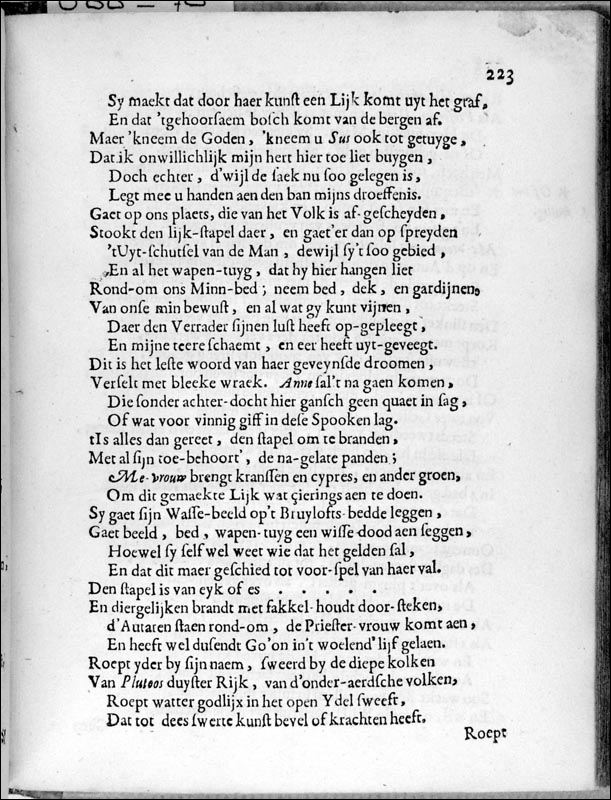 223
Sy maekt dat door haer kunſt een Lijk komt uyt het graf,
En dat 'tgehoorſaem boſch komt van de bergen af.
Maer 'kneem de Goden, 'kneem u Sus ook tot getuyge,
Dat ik onwillichlijk mijn hert hier toe liet buygen,
Doch echter, d'wijl de ſaek nu ſoo gelegen is,
Legt mee u handen aen den ban mijns droeffenis.
Gaet op ons plaets, die van het Volk is af-geſcheyden,
Stookt den lijk-ſtapel daer, en gaet'er dan op ſpreyden
'tUyt-ſchutſel van de Man, dewijl ſy't ſoo gebied,
En al het wapen-tuyg, dat hy hier hangen liet
Rond-om ons Minn-bed; neem bed, dek, en gardijnen,
Van onſe min bewuſt, en al wat gy kunt vijnen,
Daer den Verrader ſijnen luſt heeft op-gepleegt,
En mijne teere ſchaemt, en eer heeft uyt-geveegt.
Dit is het leſte woord van haer geveynſde droomen,
Verſelt met bleeke wraek. Anne ſal't na gaen komen,
Die ſonder achter-docht hier ganſch geen quaet in ſag,
Of wat voor vinnig giff in deſe Spooken lag.
tIs alles dan gereet, den ſtapel om te branden,
Met al ſijn toe-behoort', de na-gelate panden;
Me-vrouw brengt kranſſen en cypres, en ander groen,
Om dit gemaekte Lijk wat çierings aen te doen.
Sy gaet ſijn Waſſe-beeld op't Bruylofts-bedde leggen,
Gaet beeld, bed, wapen-tuyg een wiſſe dood aen ſeggen,
Hoewel ſy ſelf wel weet wie dat het gelden ſal,
En dat dit maer geſchied tot voor-ſpel van haer val.
Den ſtapel is van eyk of es . . . . .
En diergelijken brandt met fakkel-houdt door-ſteken,
d'Autaren ſtaen rond-om, de Prieſter-vrouw komt aen,
En heeft wel duſendt Go'on in't woelend' lijf gelaen.
Roept yder by ſijn naem, ſweerd by de diepe kolken
Van Plutoos duyſter Rijk, van d'onder-aerdſche volken,
Roept watter godlijx in het open Ydel ſweeft,
Dat tot dees ſwerte kunſt bevel of krachten heeft.
Roept